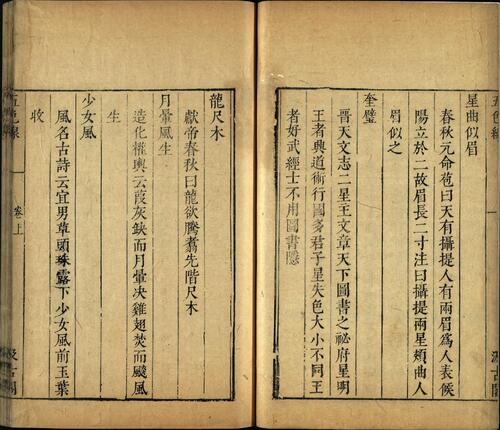 星曲似眉
春秋元命苞曰天有攝提人有兩眉爲人表候
陽立於二故眉長二寸注曰攝提兩星頬曲人
眉似之
奎璧
晋天文志二星王文章天下圖書之秘府星明
王者興道術行國多君子星失色大小不同王
者好武經士不用圖書隱
龍尺木
獻帝春秋曰龍欲騰翥先階尺木
月暈風生
造化權輿云葭灰缺而月暈决雞翅焚而颷風
生
少女風
風名古詩云宜男草頭珠露下少女風前玉葉
收
五色線
卷上
汲古閣